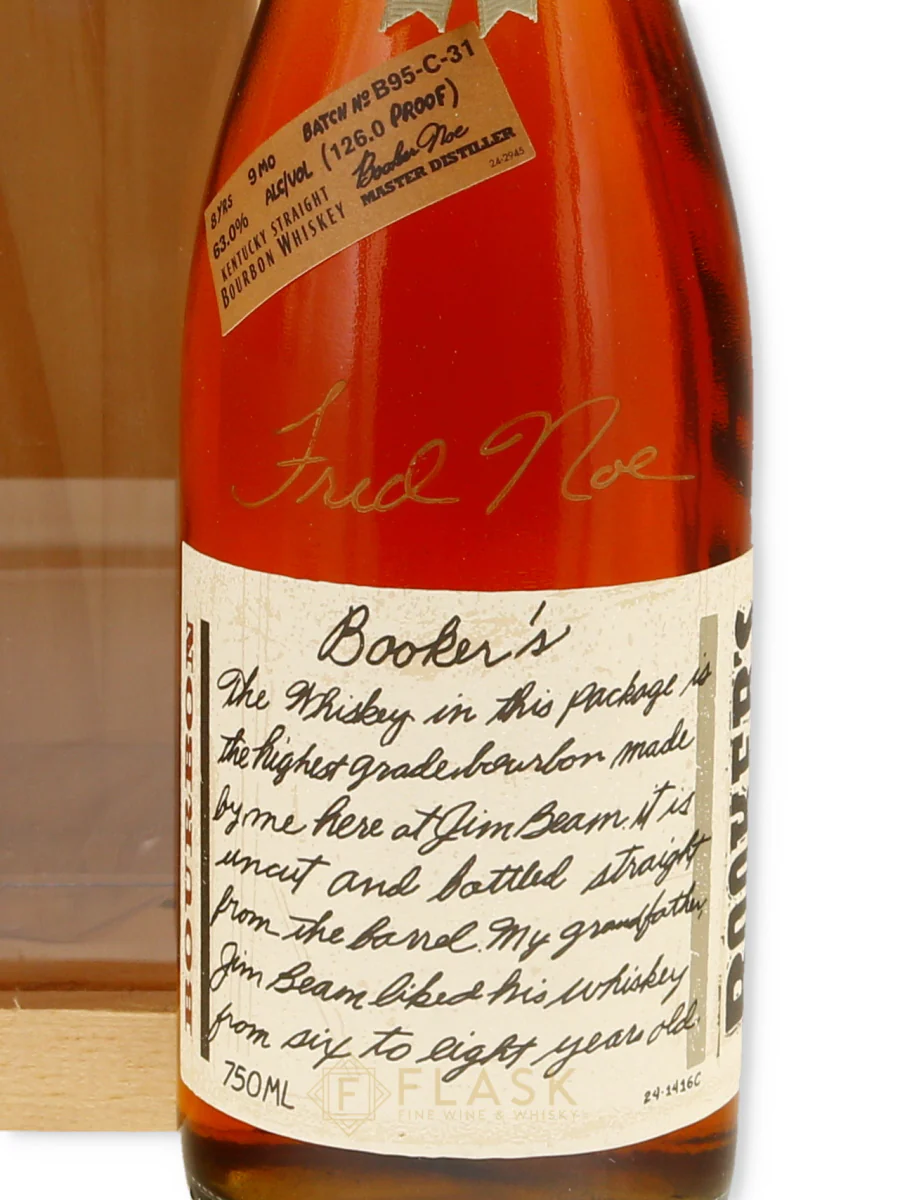 8 YRS 9 MO BATCH Nº B95-C-31
63.0% ALC/VOL (126.0 PROOF)
KENTUCKY STRAIGHT Booker Noe
BOURBON WHISKEY MASTER DISTILLER
24-2945
Fred Noe
Booker's
The Whiskey in this package is
the highest grade bourbon made
by me here at Jim Beam. it is
uncut and bottled straight
from the barrel. My grandfather,
Jim Beam liked his whiskey
from six to eight years old.
750ML
24-1416C
BOURBON
BOOKER'S
F FLASK
FINE WINE & WHISKY